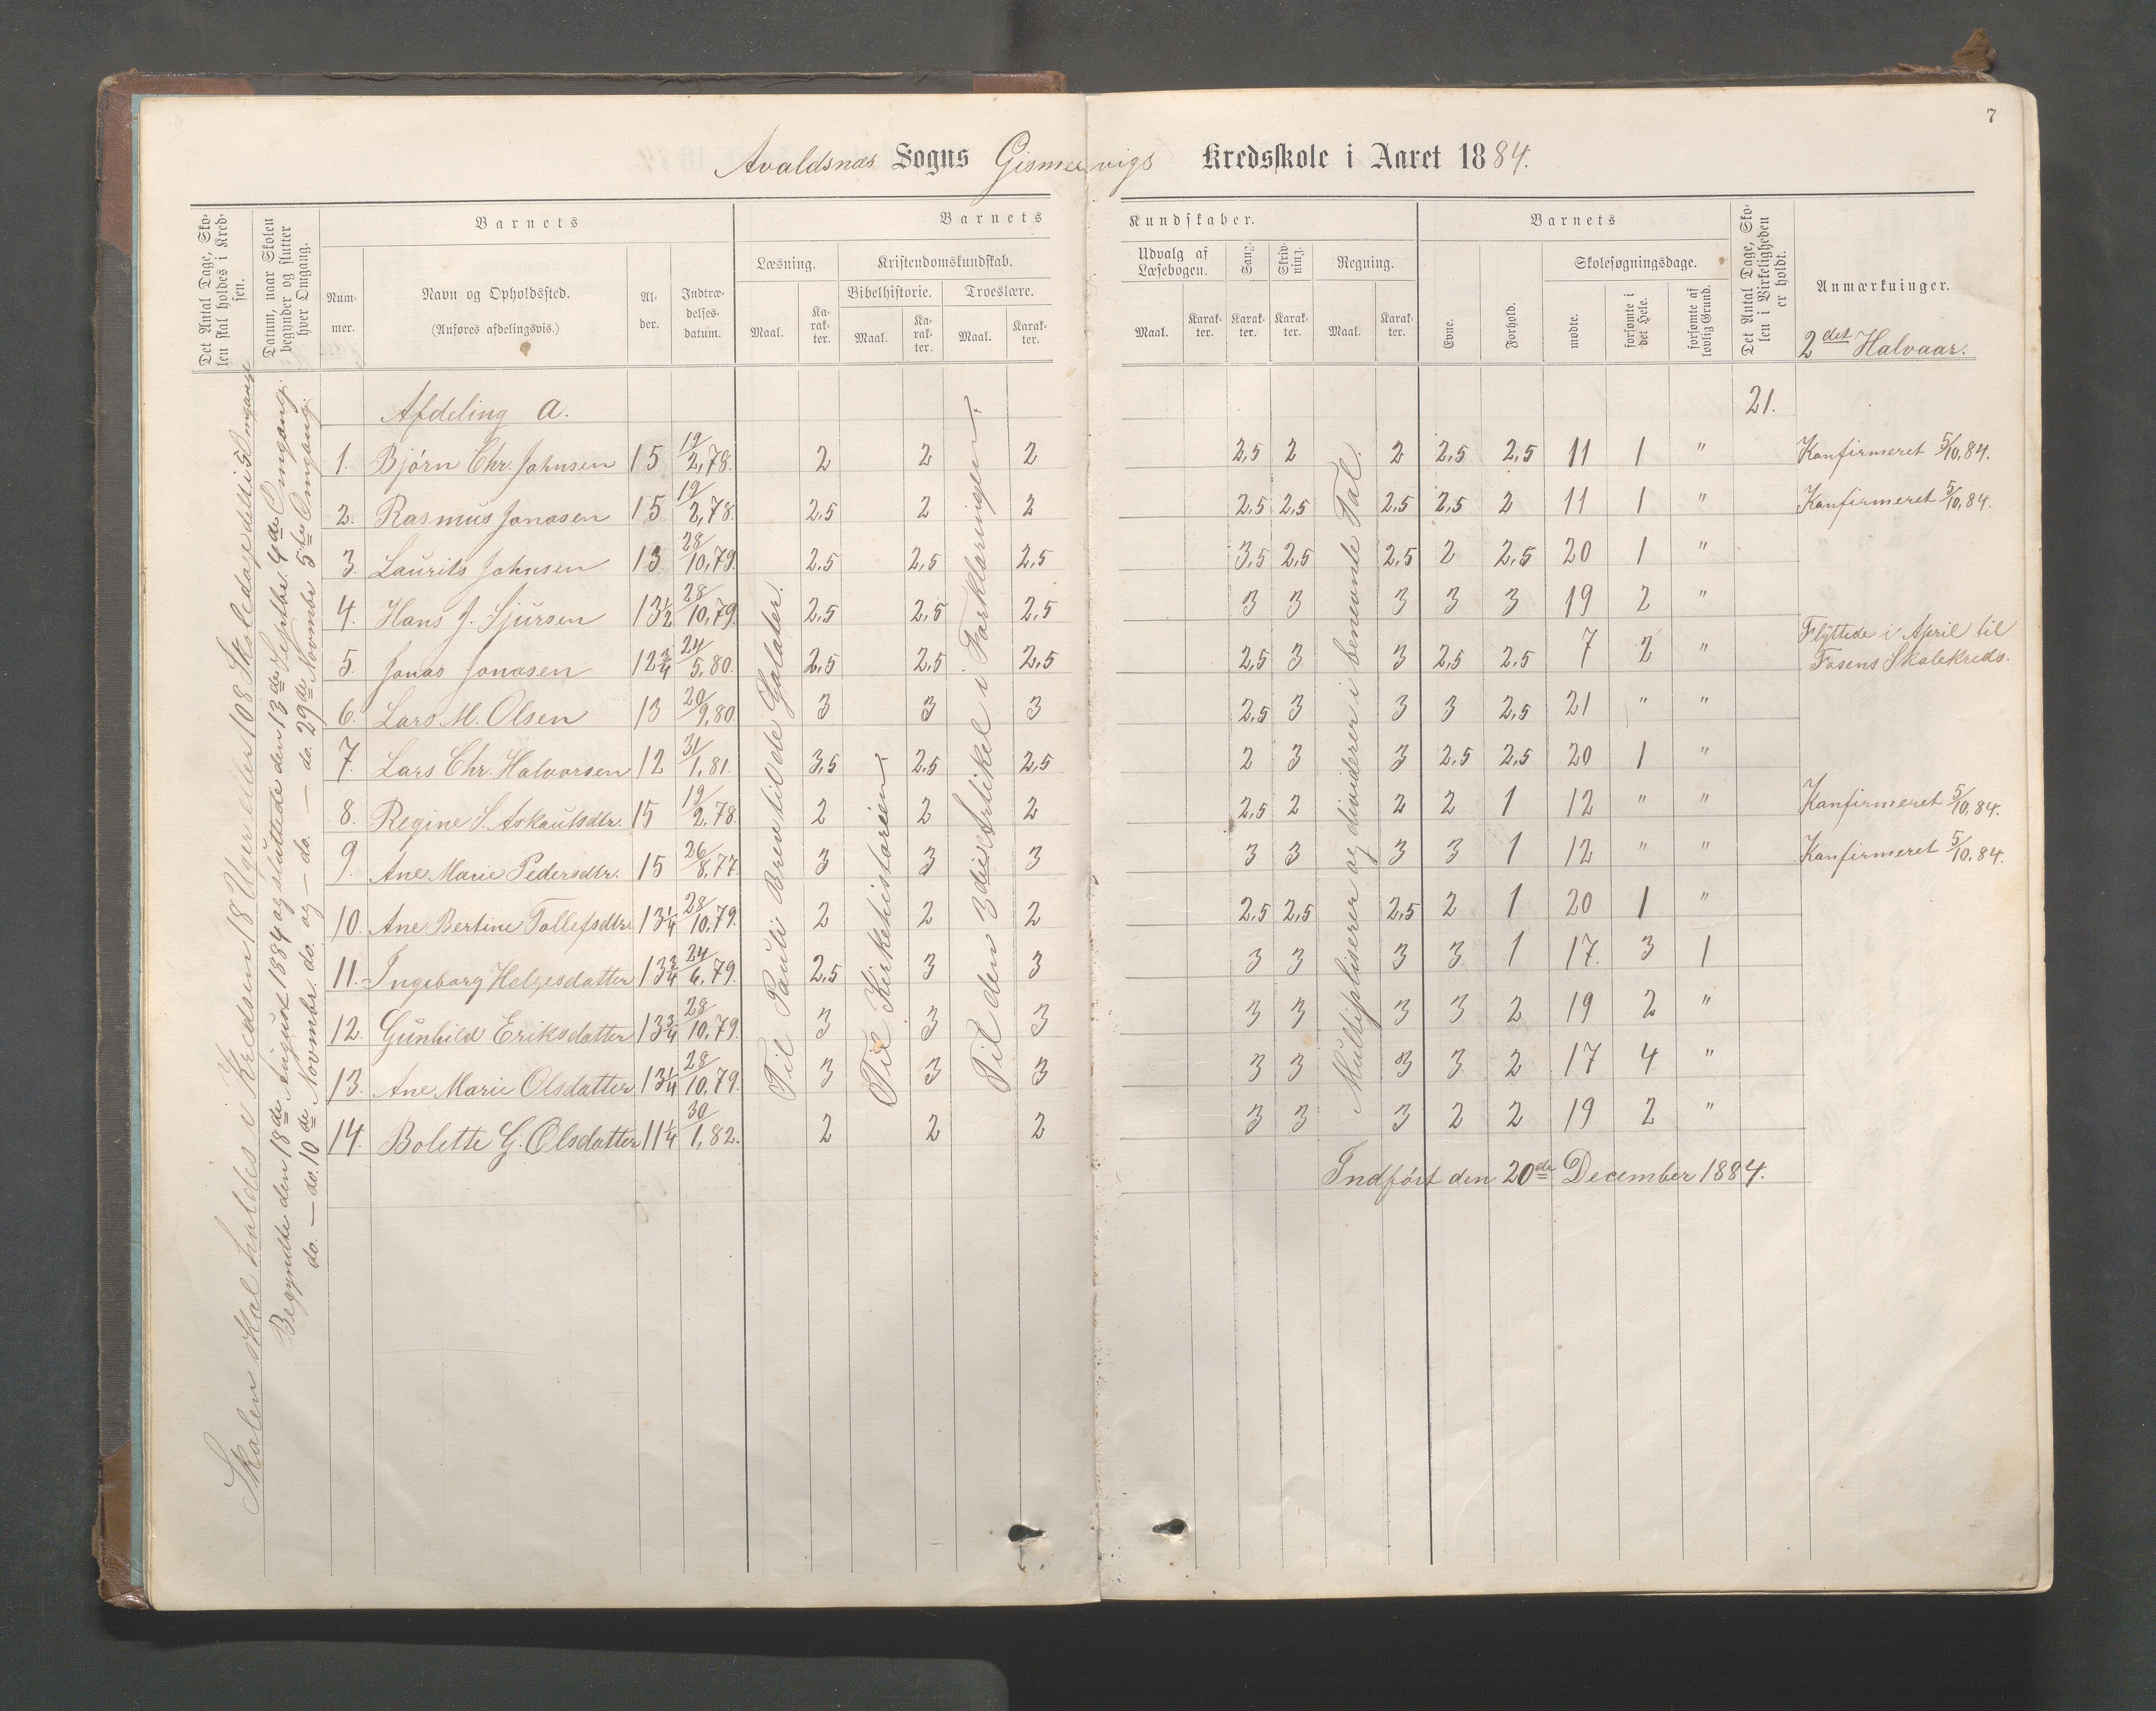 7
Avaldsnæs Sogns Gismervigs Kredsskole i Aaret 1884.
Det Antal Dage, Skolen skal holdes i Kredsen.
Datum, naar Skolen begynder og slutter hver Omgang.
Barnets
Barnets
Kundskaber.
Barnets
Det Antal Dage, Skolen i Virkeligheden er holdt.
Anmærkninger.
Nummer.
Navn og Opholdssted.
(Anføres afdelingsvis.)
Alder.
Indtrædelsesdatum.
Læsning.
Kristendomskundskab.
Udvalg af Læsebogen.
Sang.
Skrivning.
Regning.
Evne.
Forhold.
Skolesøgningsdage.
Bibelhistorie.
Troeslære.
Maal. Karakter. Maal. Karakter. Maal. Karakter. Maal. Karakter. Karakter. Karakter. Maal. Karakter.
mødte.
forsømte i det Hele.
forsømte af lovlig Grund.
2det Halvaar.
Afdeling a. 21.
1. Bjørn Chr. Johnsen 15 19/2,78. 2 2 2 2,5 2 2 2,5 2,5 11 1 " Konfirmeret 5/10,84.
2. Rasmus Jonasen 15 19/2,78. 2,5 2 2 2,5 2,5 2,5 2,5 2 11 1 " Konfirmeret 5/10,84.
3. Laurits Johnsen 13 28/10,79. 2,5 2,5 2,5 3,5 2,5 2,5 2 2,5 20 1 "
4. Hans J. Sjursen 13½ 28/10,79. 2,5 2,5 2,5 3 3 3 3 3 19 2 "
5. Jonas Jonasen 12¾ 24/5,80. 2,5 2,5 2,5 2,5 3 3 2,5 2,5 7 2 " Flyttede i April til Fosens Skolekreds.
6. Lars M. Olsen 13 20/9,80. 3 3 3 2,5 3 3 3 2,5 21 " "
7. Lars Chr. Halvorsen 12 31/1,81. 3,5 2,5 2,5 2 3 3 2,5 2,5 20 1 "
8. Regine S. Askautsdtr. 15 19/2,78. 2 2 2 2,5 2 2 2 1 12 " " Konfirmeret 5/10,84.
9. Ane Marie Pedersdtr. 15 26/8,77. 3 3 3 3 3 3 3 1 12 " " Konfirmeret 5/10,84.
10. Ane Bertine Tollefsdtr. 13¼ 28/10,79. 2 2 2 2,5 2,5 2,5 2 1 20 1 "
11. Ingeborg Helgesdatter 13¾ 24/6,79. 2,5 3 3 3 3 3 3 1 17. 3 1
12. Gunhild Eriksdatter 13¾ 28/10,79. 3 3 3 3 3 3 3 2 19 2 "
13. Ane Marie Olsdatter 13¼ 28/10,79. 3 3 3 3 3 3 3 2 17 4 "
14. Bolette G. Olsdatter 11¼ 30/1,82. 2 2 2 3 3 3 2 2 19 2 "
Indført den 20de December 1884.
Skolen skal holdes i Kredsen 18 Uger eller 108 Skoledage delt i 5 Omgange
Begyndte den 18de August 1884 og sluttede den 13de Septbr. 4de Omgang.
do. — do. 10de Novmbr. do. og — do. — do. 29de Novmbr. 5te Omgang.
Til Pauli Brev til de Galater.
Til Kirkehistorien.
Til den 3die Artikel i Forklaringen.
Multipliserer og dividerer i benevnte Tal.